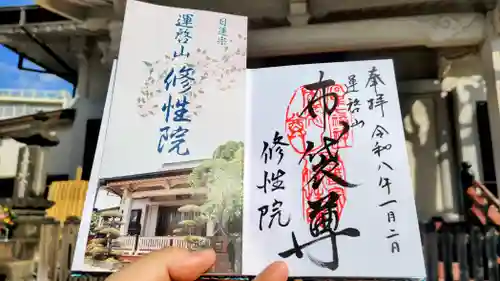 日蓮宗
運啓山
修性院
奉拝
令和八年一月二日
運啓山
布袋尊
修性院